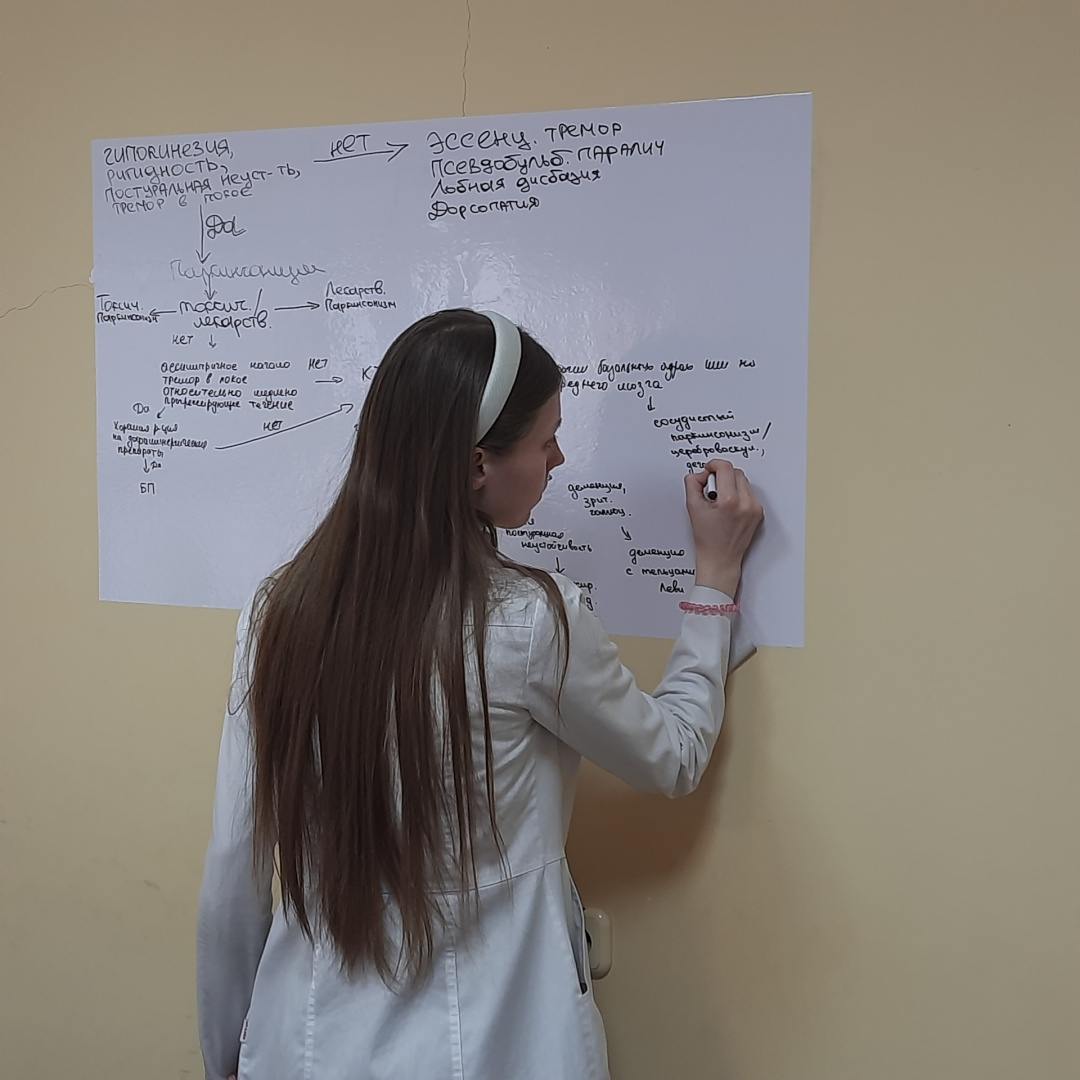 ГИПОКИНЕЗИЯ,
РИГИДНОСТЬ,
ПОСТУРАЛЬНАЯ НЕУСТ-ТЬ,
ТРЕМОР В ПОКОЕ
НЕТ
ЭССЕНЦ. ТРЕМОР
ПСЕВДОБУЛЬБ. ПАРАЛИЧ
Лобная дисбазия
Дорсопатия
Да
Паркинсонизм
Токсич.
Паркинсонизм
токсич./
лекарств.
Лекарств.
Паркинсонизм
нет
ассиметричное начало
тремор в покое
относительно медлено
прогрессирующее течение
нет
К
базальных ядрах или на
реднего мозга
Да
Хорошая р-ция
на дофаминергические
препараты
нет
да
БП
сосудистый
паркинсонизм/
цереброваскул.,
деменция,
зрит.
галлюц.
постуральная
неустойчивость
деменция
с тельцами
Леви